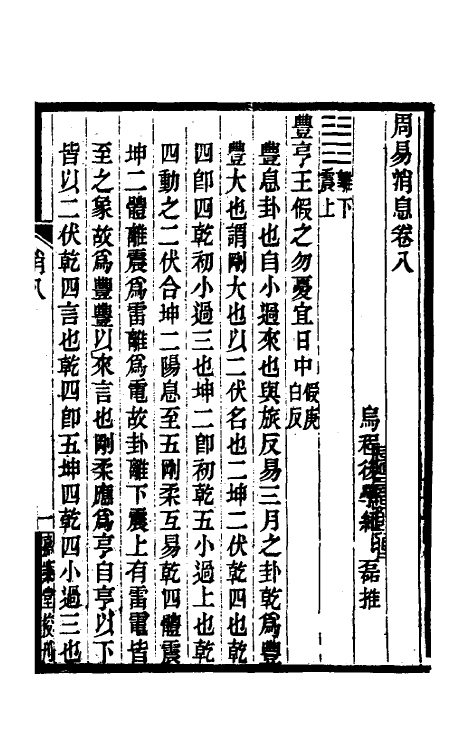 周易消息卷八
烏程後學紀磊推
離下
震上
豐亨王假之勿憂宜日中假庚白反
豐息卦也自小過來也與旅反易三月之卦乾爲豐
豐大也謂剛大也以二伏名也二坤二伏乾四也乾
四卽四乾初小過三也坤二卽初乾五小過上也乾
四動之二伏合坤二陽息至五剛柔互易乾四體震
坤二體離震爲雷離爲電故卦離下震上有雷電皆
至之象故爲豐豐以來言也剛柔應爲亨自亨以下
皆以二伏乾四言也乾四卽五坤四乾四小過三也
消八
一